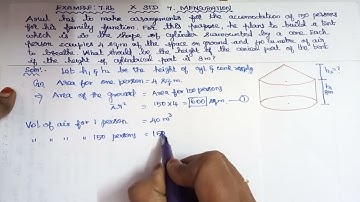 EXAMPLE: 7.26 X STD 7. MENSURATION
Arul has to make arrangements for the accomodation of 150 persons
for his family function. For this purpose, he plans to build a tent
which is in the shape of cylinder surmounted by a cone. Each
person occupies 4 sqm of the space on ground and 40 cu.metre of air
to breathe. What should be the height of the conical part of the tent
if the height of cylindrical part is 8m?
Soln:- Let h₁ & h₂ be the height of cyl & cone resply
Area for one person = 4 sqm
⇒ Area of the ground = Area for 150 persons
πr² = 150 x 4 = 600 sqm — ①
Vol. of air for 1 person = 40 m³
" " " " 150 persons = 150
h₂ = ?